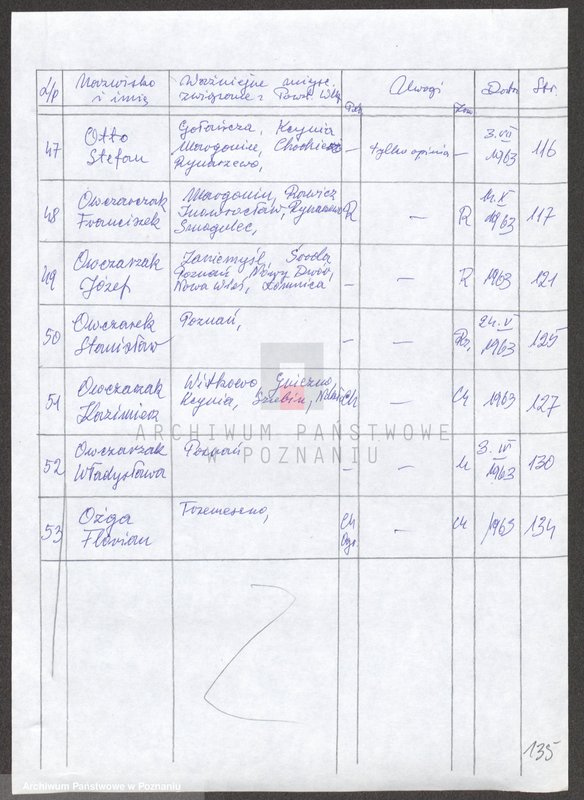 L/p Nazwisko i imię Ważniejsze miejsc. związane z Powst. Wlkp. Uwagi Data Str.
47 Otto Stefan Gołańcza, Kcynia
Margonin, Chodzież
Rynarzewo, – tylko opinia – 3.VII 1963 116
48 Owczarczak Franciszek Margonin, Rawicz
Inowrocław, Rynarzewo
Smogulec, R – R 1963 117
49 Owczarzak Józef Zaniemyśl, Środa
Poznań, Nowy Dwór,
Nowa Wieś, Łomnica – – R 1963 121
50 Owczarek Stanisław Poznań, – – 24.V 1963 125
51 Owczarzak Kazimierz Witkowo, Gniezno,
Kcynia, Szubin, Nakło Ch – Ch 1963 127
52 Owczarzak Władysława Poznań – – 3.IV 1963 130
53 Ożga Florian Trzemeszno, Ch – Ch 1963 134
ARCHIWUM PAŃSTWOWE
W POZNANIU
135
Archiwum Państwowe w Poznaniu